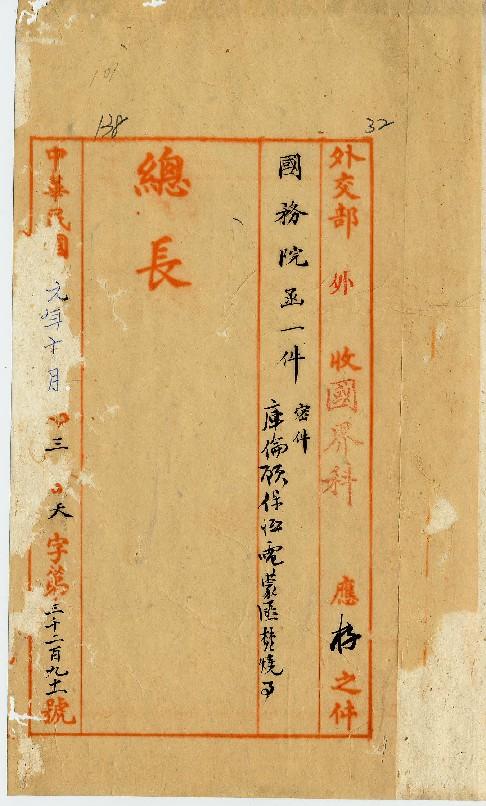 107
138
32
外交部 外 收國界科 應存之件
國務院函一件
密件
庫倫 保 電蒙匪焚燒事
總長
中華民國 元年十月 三 天字第三千二百九十 號